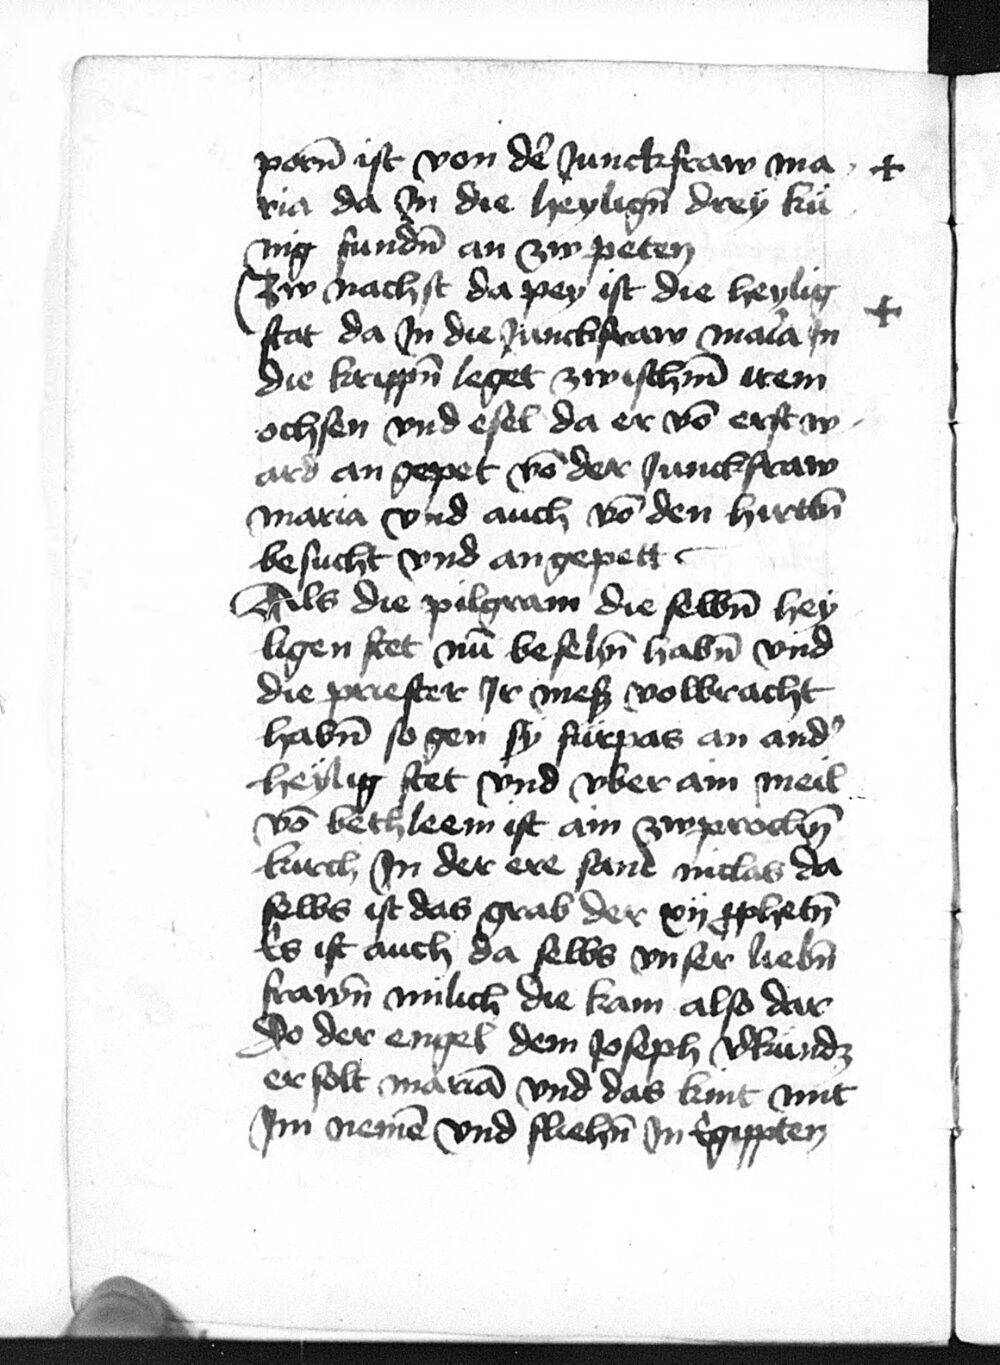 porn̄ ist von de᷑ Junckfraw ma +
ria da Jn die heylign̄ drey kü
nig fundn̄ an zw peten
Zw nachst da pey ist die heylig
stat da Jn die Junckfraw maria Jn +
die krippn̄ leget zwischnn̄ irem
ochsen vnd esel da er vō erst w
ard an gepet vō der Junckfraw
maria vnd auch vō den hirttn̄
besucht vnd angepett
Als die pilgram die selbn̄ hey
ligen stet nū besehn̄ habn̄ vnd
die priester Jr meß volbracht
habn̄ so gen sy fürpas an and᷑
heylig stet vnd vber ain meil
vō bethleem ist ain zwprochn̄
kirch Jn der ere sand niclas da
selbs ist das grab der xij ꝓphetn̄
Es ist auch da selbs vnser liebn̄
frawn̄ milich die kam also dar
Do der engel dem Joseph v᷑kundꝫ
er solt mariā vnd das kint mit
Jm nemē vnd fliehn̄ Jn Egippten